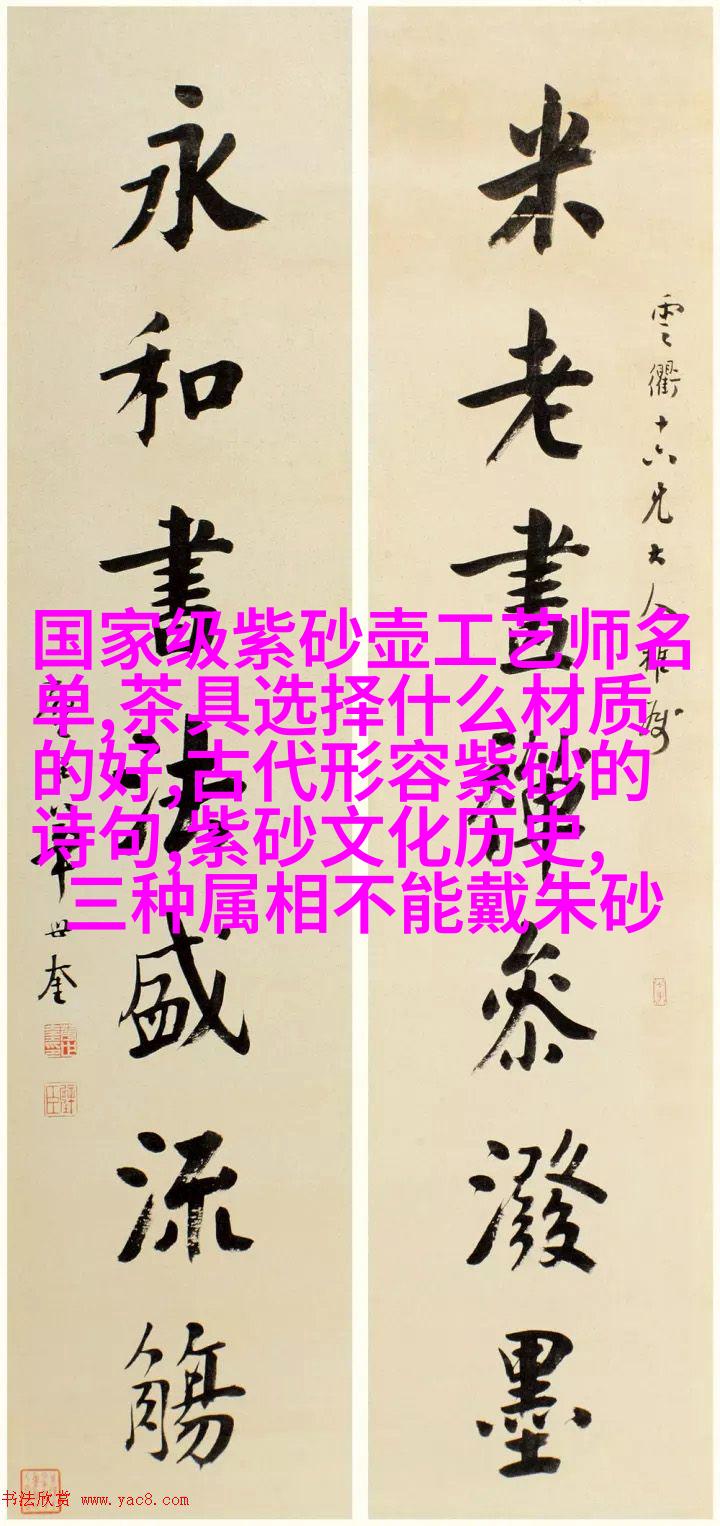 雲衢十六兄大人雅屬
米老畫禪參潑墨
永和書法盛流觴
華世奎
国家级紫砂壶工艺师名
单,茶具选择什么材质
的好,古代形容紫砂的
诗句,紫砂文化历史,
三种属相不能戴朱砂
书法欣赏 www.yac8.com